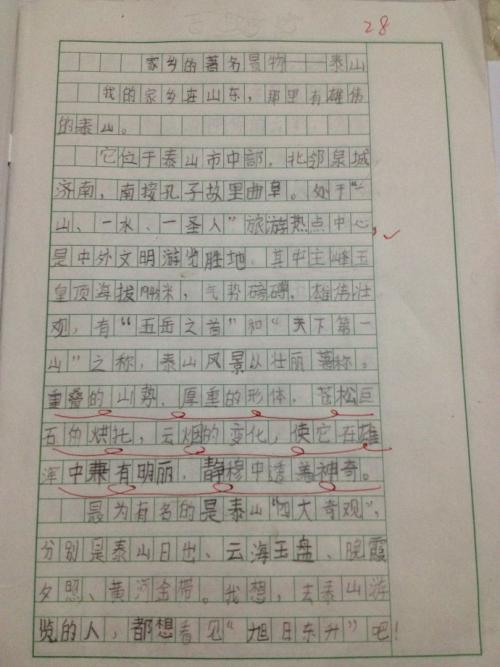 28
家乡的著名景物——泰山
我的家乡在山东，那里有雄伟
的泰山。
它位于泰山市中部，北邻泉城
济南，南接孔子故里曲阜。处于“一
山、一水、一圣人”旅游热点中心，
是中外文明游览胜地，其中主峰玉
皇顶海拔米，气势磅礴，雄伟壮
观，有“五岳之首”和“天下第一
山”之称，泰山风景以壮丽著称。
重叠的山势，厚重的形体，苍松巨
石的烘托，云烟的变化，使它在雄
浑中兼有明丽，静穆中透着神奇。
最为有名的是泰山“四大奇观”，
分别是泰山日出、云海玉盘、晚霞
夕照、黄河金带。我想，去泰山游
览的人，都想看见“旭日东升”吧！